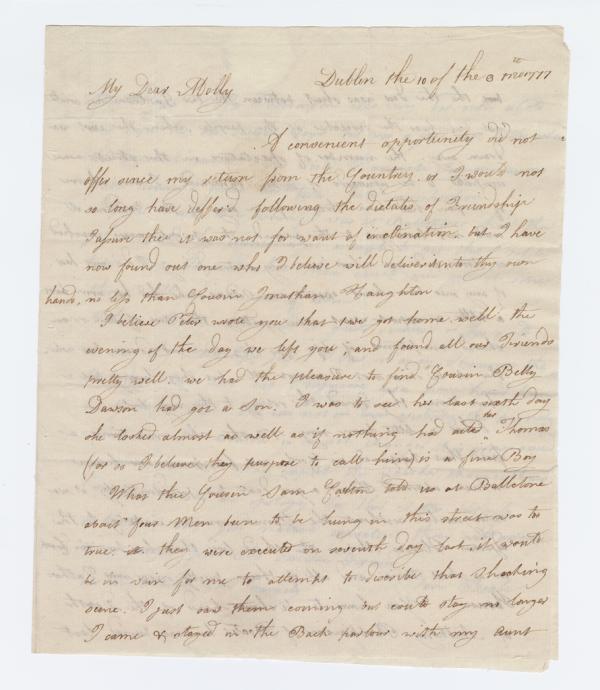 Dublin the 10 of the 8th mo 1777
My Dear Molly
A convenient opportunity did not
offer since my return from the Country. or I would not
so long have deffer'd following the dictates of Friendship
I assure thee it was not for want of inclination. but I have
now found out one who I believe will deliver it into thy own
hands, no less than Cousin Jonathan Haughton
I believe Peter wrote you that we got home well the
evening of the day we left you, and found all our Friends
pretty well, we had the pleasure to find Cousin Betty
Dawson had got a Son. I was to see her last sixth day
she looked almost as well as if nothing had ailed her Thomas
(for so I believe they purpose to call him) is a fine Boy
What thee Cousin Sam told us at Ballitore
about four Men been to be hung in this street was too
true. they were executed on seventh day last, it would
be in vain for me to attempt to describe that Shocking
scene. I just saw them coming but could stay no longer
I came & stayed in the Back parlour with my aunt